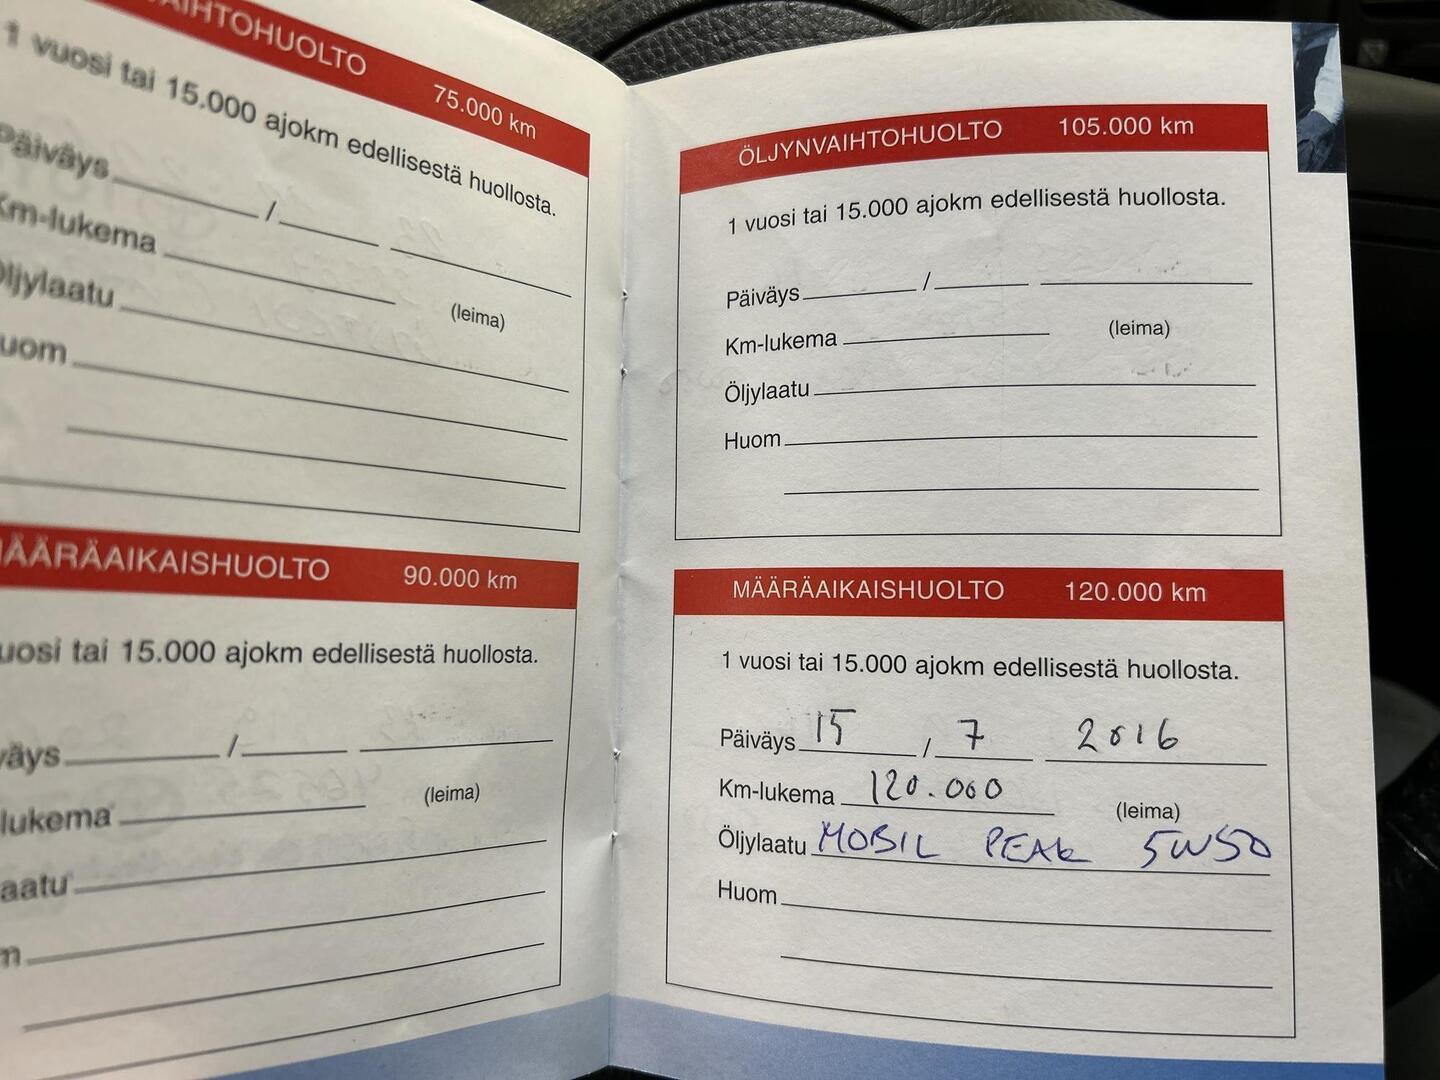 1 vuosi tai 15.000 ajokm edellisestä huollosta.
75.000 km
Päiväys / 
Km-lukema
(leima)
MÄÄRÄAIKAISHUOLTO 90.000 km
tai 15.000 ajokm edellisestä huollosta.
/
(leima)
ÖLJYNVAIHTOHUOLTO 105.000 km
1 vuosi tai 15.000 ajokm edellisestä huollosta.
Päiväys /
Km-lukema (leima)
Öljylaatu
Huom
MÄÄRÄAIKAISHUOLTO 120.000 km
1 vuosi tai 15.000 ajokm edellisestä huollosta.
Päiväys 15 / 7 2016
Km-lukema 120.000 (leima)
Öljylaatu MOBIL PEAK 5W50
Huom